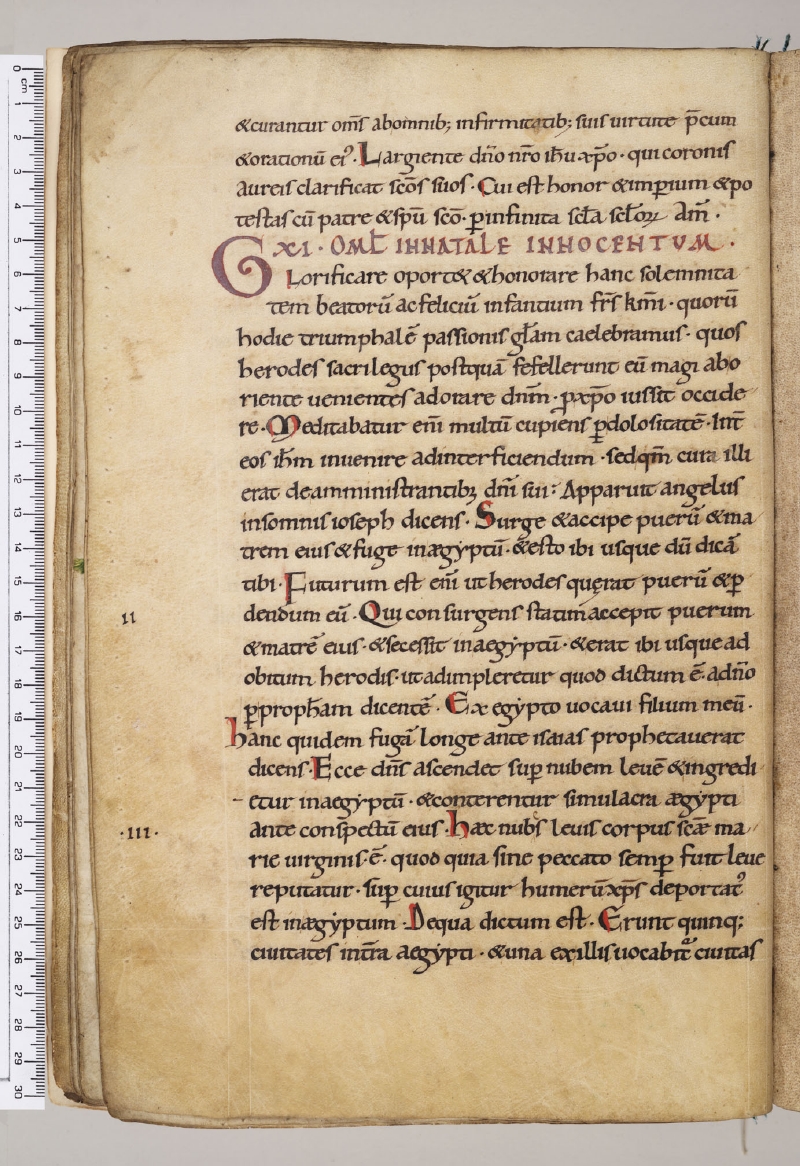 &curantur om̄s abomnib; infirmitatib; suis uirtute p̄cum
&orationū ei᾽. Largiente dn̄o nr̄o ih̄u xp̄o · qui coronis
aureis clarificat sc̄os suos · Cui est honor &imꝑium &po
testas cū patre &sp̄u sc̄o · ꝑinfinita sc̄la sc̄loꝝ Am̄ ·
XI · OML̄ IN NATALE INNOCENTUM ·
Glorificare oport& &honorare hanc solemnita
tem beatorū ac feliciū infantium fr̄s km̄i · quorū
hodie triumphalē passionis gl̄am caelebramus · quos
herodes sacrilegus postquā fefellerunt eū magi abo
riente uenientes adorare dn̄m · p xp̄o iussit occide
re · Meditabatur eni̅ multū cupiens ꝑdolositatē · Int̄
eos ih̄m inuenire adinterficiendum · sedqm̄ cura illi
erat deamministrantibꝫ dn̄i sui : Apparuit angelus
insomnis ioseph dicens · Surge &accipe puerū &ma
trem eius &fuge inægyptū · &esto ibi usque dū dicā
tibi · Futurum est eni̅ ut herodes quęrat puerū &ꝑ
dendum eū · Qui consurgens statim accepit puerum
11
&matrē eius · &secessit inaegyptū · &erat ibi usque ad
obitum herodis · ut adimpleretur quod dictum ē · adn̄o
ꝑproph̄am dicentē · Ex egypto uocaui filium meū ·
hanc quidem fugā longe ante isaias prophetauerat
dicens · Ecce dn̄s ascendet suꝑ nubem leuē &ingredi
etur inaegyptū · &conterentur simulacra ægypti
·111·
ante conspectū eius · hæc nub̄s leuis corpus sc̄æ ma
rie uirginis · ē · quod quia sine peccato semꝑ fuit leue
reputatur · suꝑ cuius igitur humerū xp̄s deportat᾽
est inægyptum · Dequa dictum est · Erunt quinq;
ciuitates intr̄a aegypti · &una exillis uocabit᾽ ciuitas